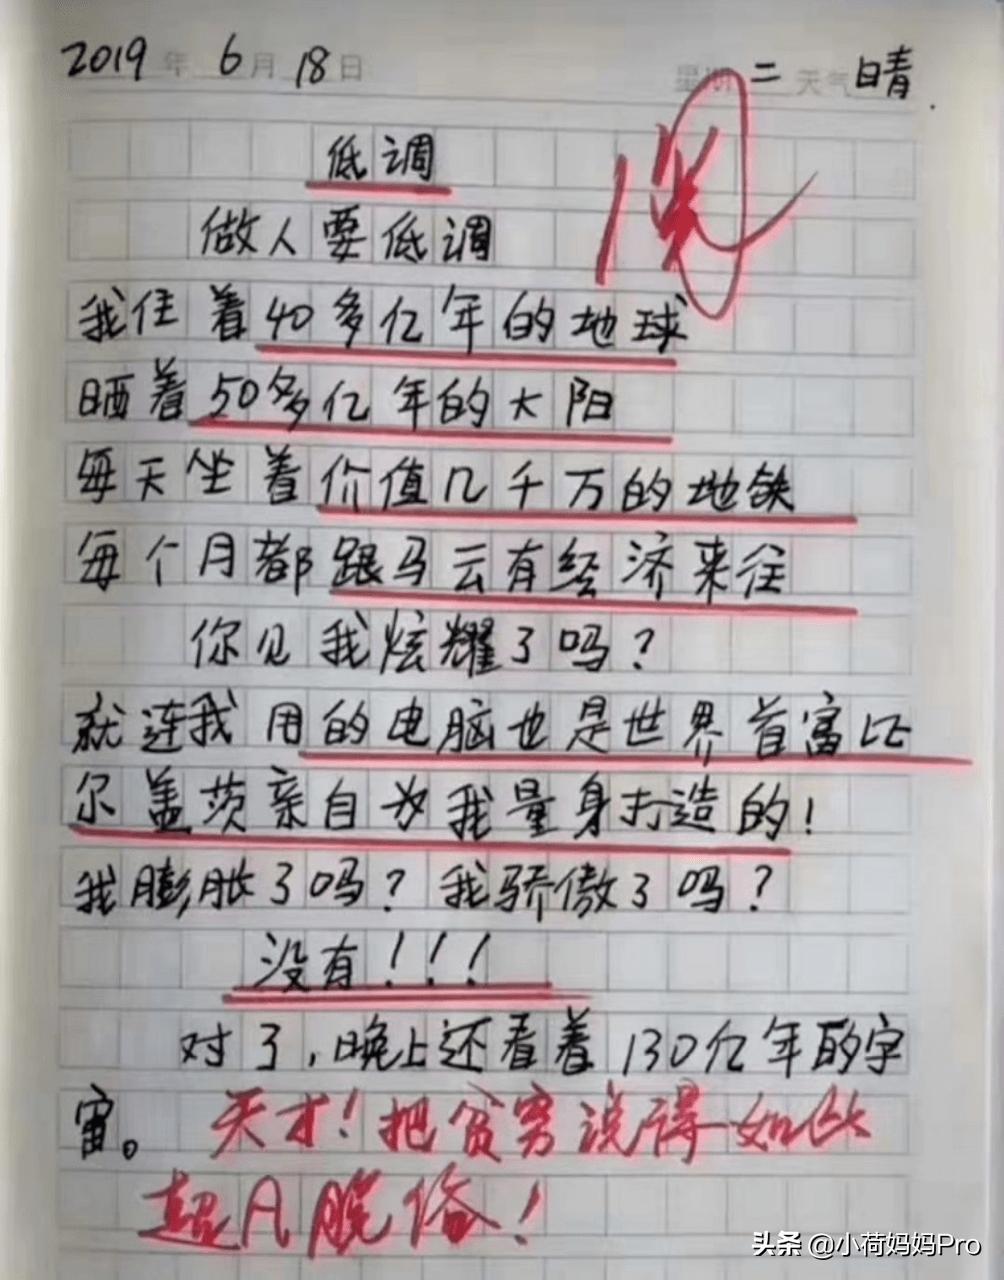 2019年 6月 18日 星期二 天气晴.
低调
做人要低调
我住着40多亿年的地球
晒着50多亿年的太阳
每天坐着价值几千万的地铁
每个月都跟马云有经济来往
你见我炫耀了吗?
就连我用的电脑也是世界首富比
尔盖茨亲自为我量身打造的!
我膨胀了吗?我骄傲了吗?
没有!!!
对了,晚上还看着130亿年的宇
宙。天才!把贫穷说得如此
超凡脱俗!
头条 @小荷妈妈Pro